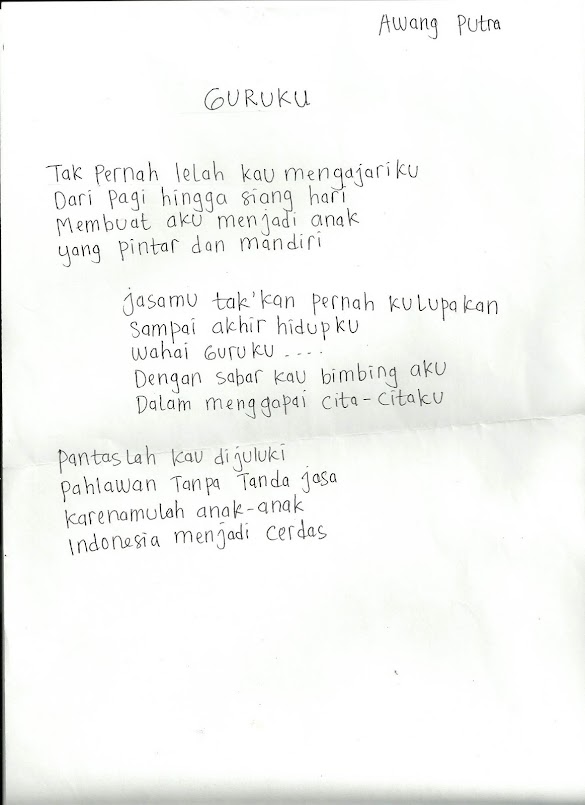 Awang Putra
GURUKU
Tak Pernah lelah kau mengajariku
Dari Pagi hingga siang hari
Membuat aku menjadi anak
yang pintar dan mandiri
jasamu tak'kan pernah kulupakan
Sampai akhir hidupku
Wahai Guruku ....
Dengan sabar kau bimbing aku
Dalam menggapai cita-citaku
Pantaslah kau dijuluki
Pahlawan Tanpa Tanda jasa
Karenamulah anak-anak
Indonesia menjadi cerdas